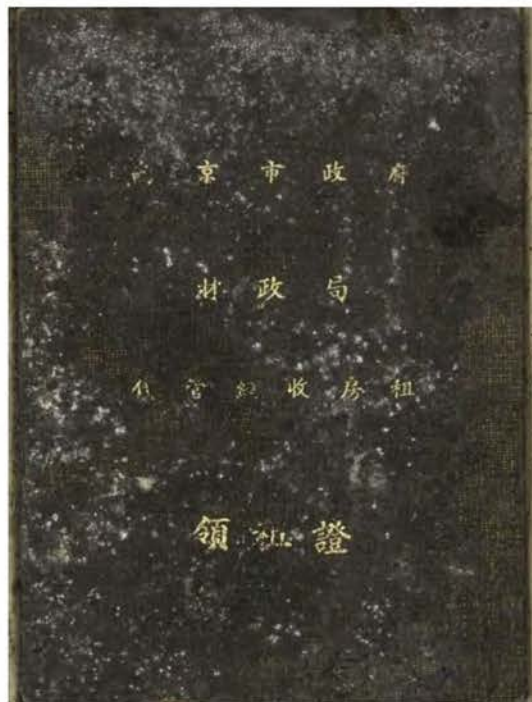 京市政府
財政局
管經收房租
領租證